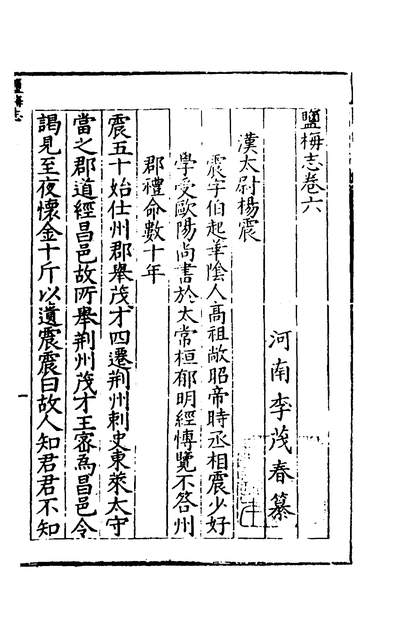 鹽梅志卷六
河南李茂春纂
漢太尉楊震
震字伯起華陰人高祖敞昭帝時丞相震少好
學受歐陽尚書於太常桓郁明經博覽不答州
郡禮命數十年
震五十始仕州郡舉茂才四遷荆州刺史東萊太守
當之郡道經昌邑故所舉荆州茂才王密為昌邑令
謁見至夜懷金十斤以遺震震曰故人知君君不知
鹽梅志
一